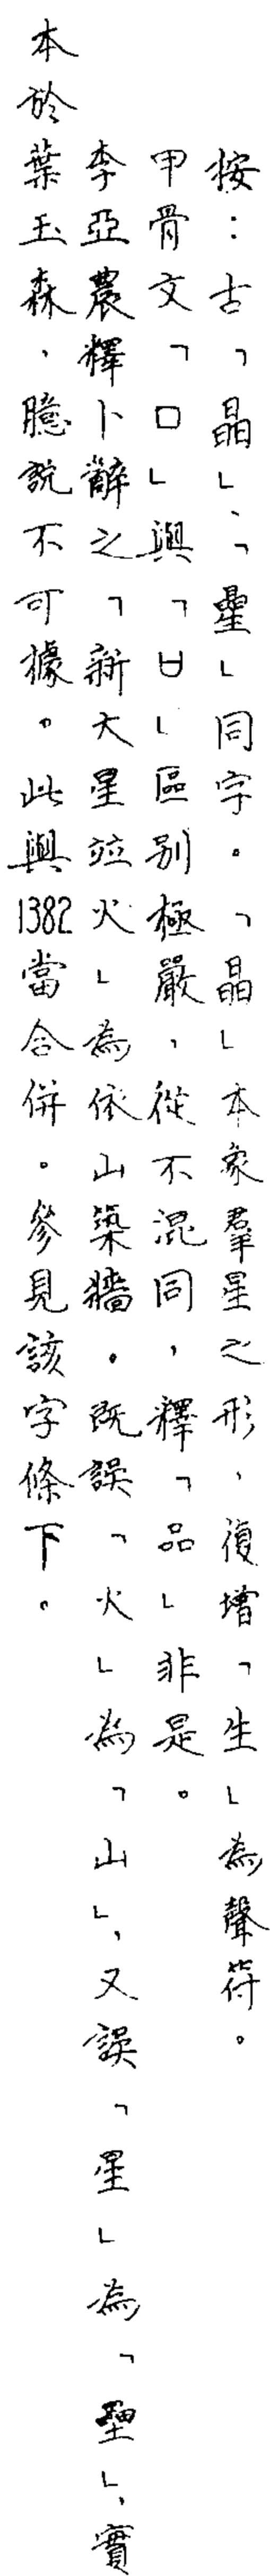 按：古「晶」、「曐」同字。「晶」本象羣星之形，復增「生」為聲符。
甲骨文「口」與「ㅂ」區別極嚴，從不混同，釋「品」非是。
李亞農釋卜辭之「新大星竝火」為依山築牆。既誤「火」為「山」，又誤「星」為「壘」，實
本於葉玉森，臆說不可據。此與1382當合併。參見該字條下。